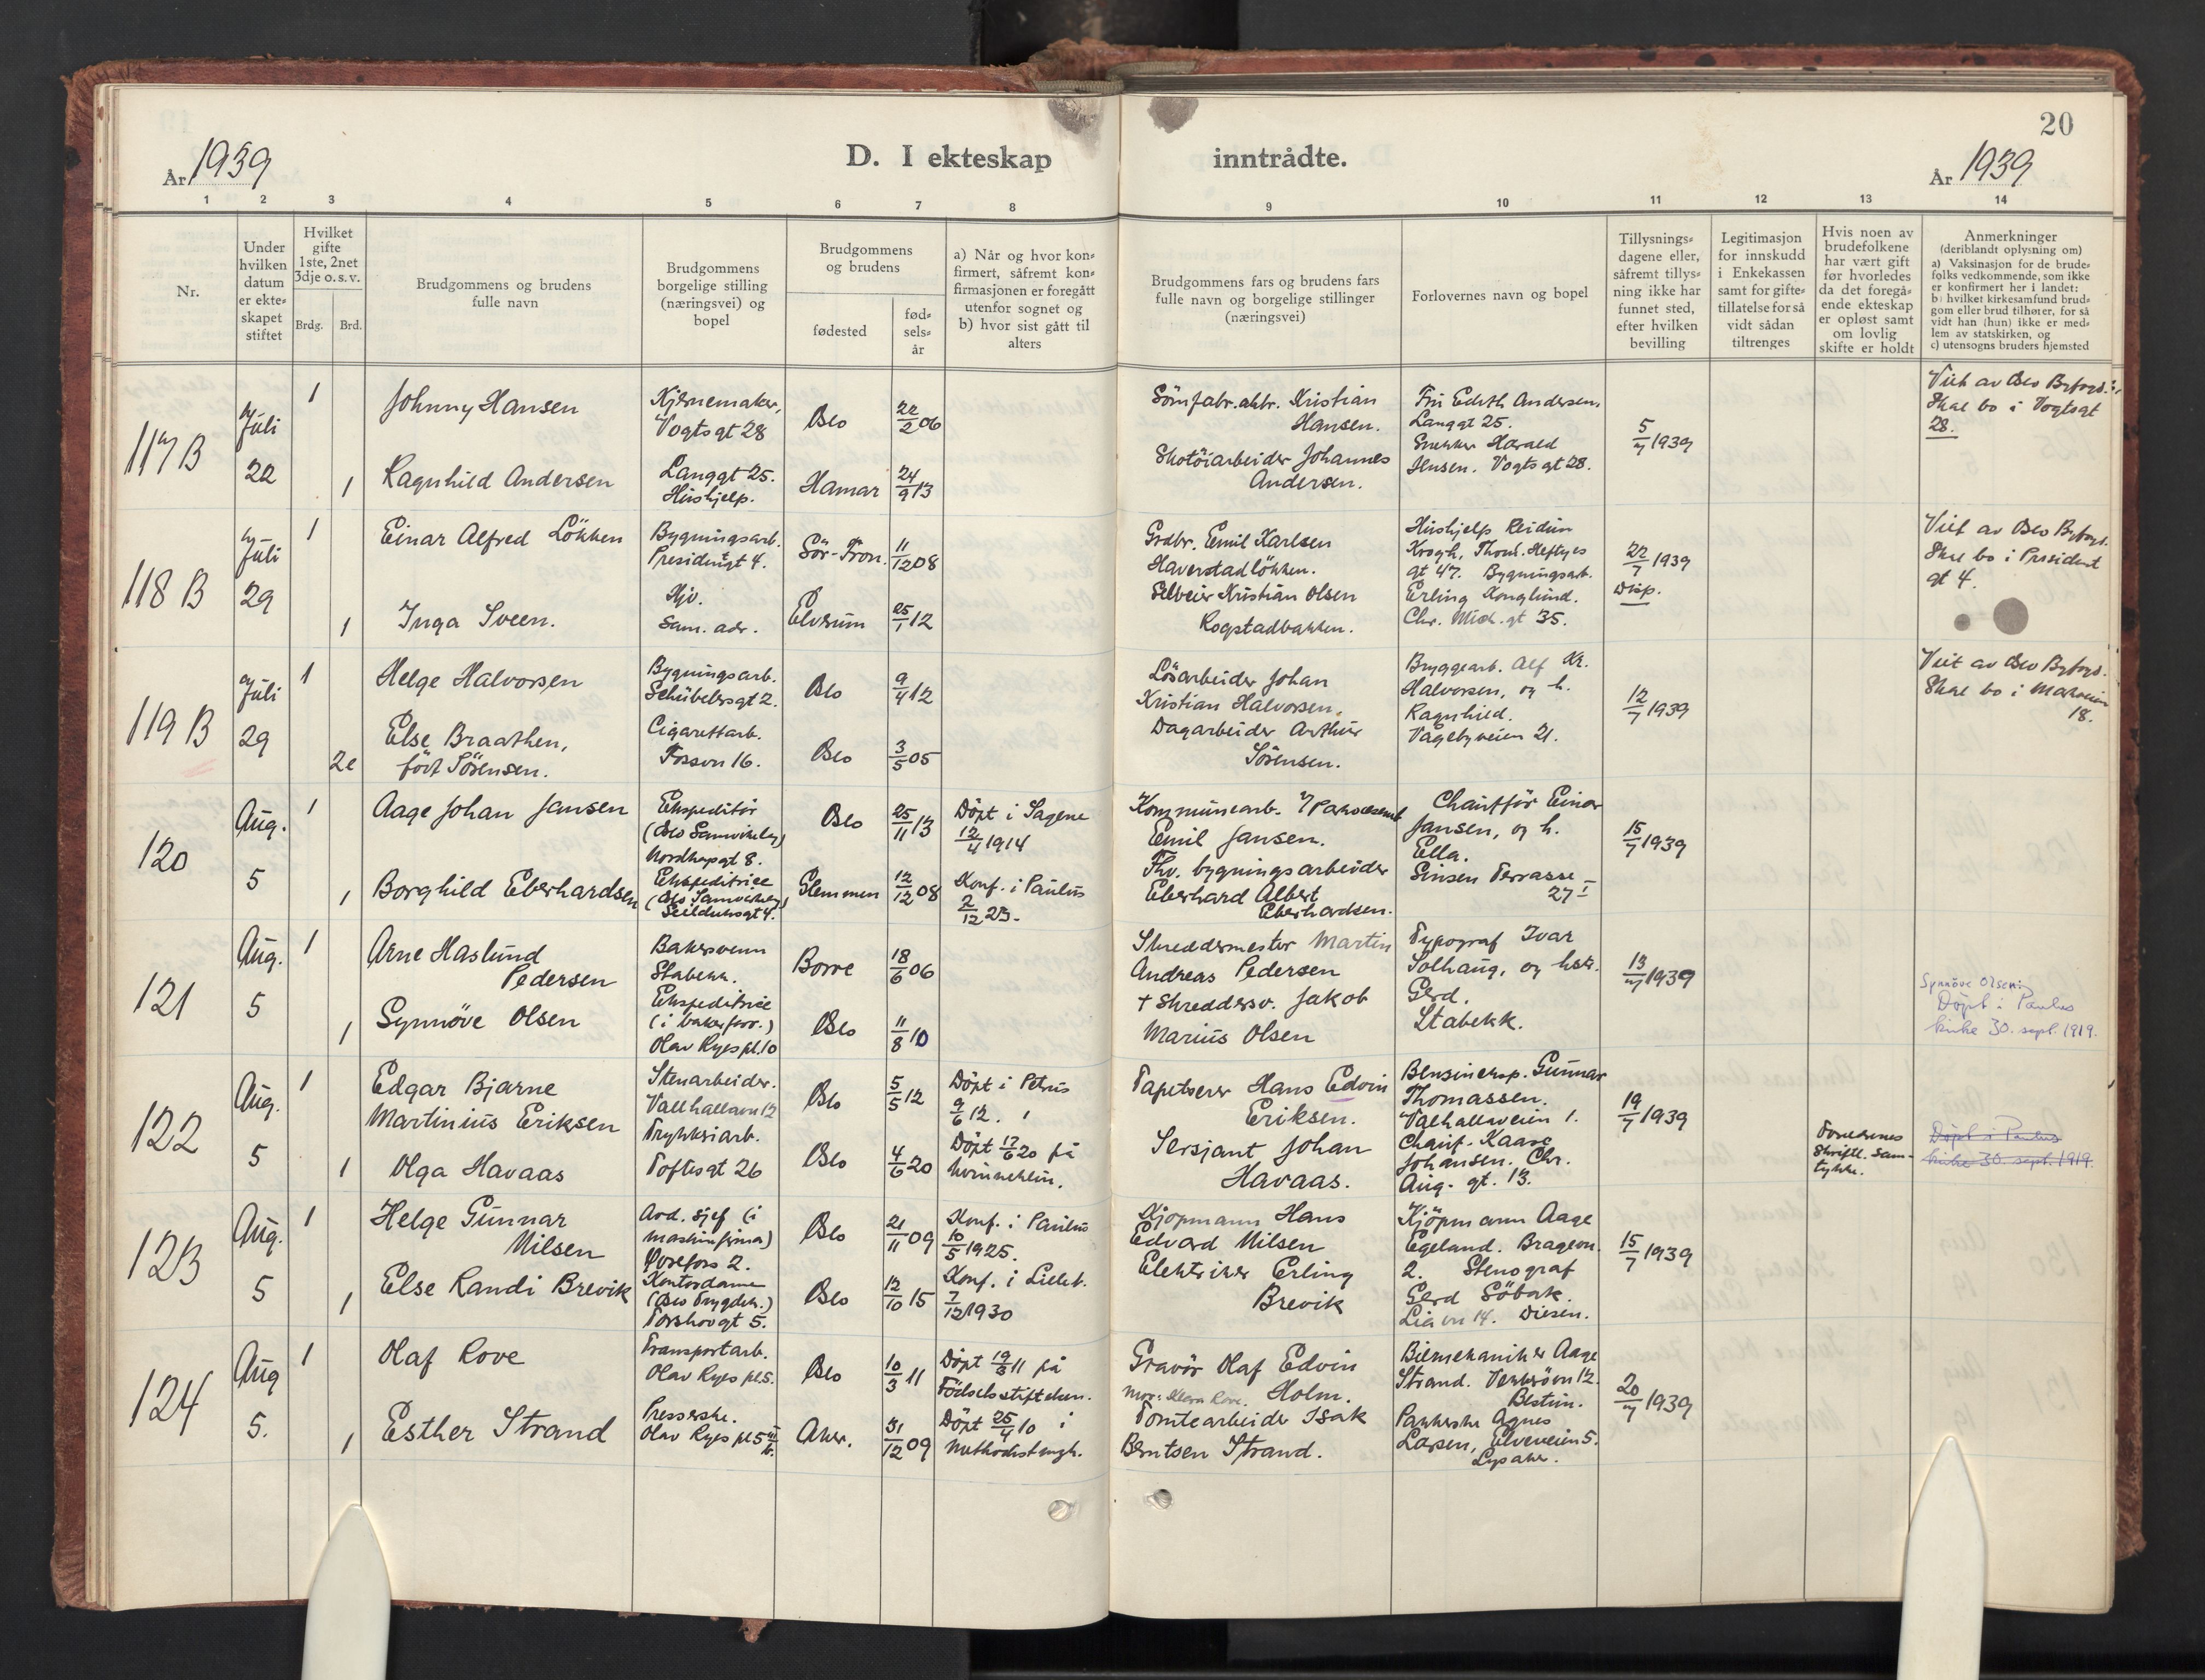 20
D. I ekteskap inntrådte.
År 1939
År 1939
1 2 3 4 5 6 7 8 9 10 11 12 13 14
Nr.
Under
hvilken
datum
er ekte-
skapet
stiftet
Hvilket
gifte
1ste, 2net
3dje o.s.v.
Brdg. Brd.
Brudgommens og brudens
fulle navn
Brudgommens
borgelige stilling
(næringsvei) og
bopel
Brudgommens
og brudens
fødested
fød-
sels-
år
a) Når og hvor kon-
firmert, såfremt kon-
firmasjonen er foregått
utenfor sognet og
b) hvor sist gått til
alters
Brudgommens fars og brudens fars
fulle navn og borgelige stillinger
(næringsvei)
Forlovernes navn og bopel
Tillysnings-
dagene eller,
såfremt tillys-
ning ikke har
funnet sted,
efter hvilken
bevilling
Legitimasjon
for innskudd
i Enkekassen
samt for gifte-
tillatelse for så
vidt sådan
tiltrenges
Hvis noen av
brudefolkene
har vært gift
før hvorledes
da det foregå-
ende ekteskap
er opløst samt
om lovlig
skifte er holdt
Anmerkninger
(deriblandt oplysning om)
a) Vaksinasjon for de brude-
folks vedkommende, som ikke
er konfirmert her i landet:
b) hvilket kirkesamfund brud-
gom eller brud tilhører, for så
vidt han (hun) ikke er med-
lem av statskirken, og
c) utensogns bruders hjemsted
117 B
Juli
22
1
1
Johnny Hansen
Ragnhild Andersen
Kjernemaker,
Vogtsgt 28
Langgt 25.
Hushjelp.
Oslo
Hamar
22/2 06
24/9 13
Sömfabr.arbr. Kristian
Hansen.
Skotöiarbeider Johannes
Andersen.
Fru Edith Andersen,
Langgt 25.
Snekker Harald
Jensen. Vogtsgt 28.
5/7 1939
Viet av Oslo Byfogd.
Skal bo i Vogtsgt
28.
118 B
Juli
29
1
1
Einar Alfred Lökken
Inga Sveen.
Bygningsarb.
Presidentgt 4.
Hjv.
Sam. adr.
Sör-Fron.
Elverum
11/12 08
25/1 12
Grdbr. Emil Karlsen
Haverstadlökken.
Selveier Kristian Olsen
Rogstadbakken.
Hushjelp Reidun
Krogh, Thom. Heftyes
gt 47. Bygningsarb.
Erling Konglund.
Chr. Mich. gt 35.
22/7 1939
Disp.
Viet av Oslo Byfogd.
Skal bo i President
gt 4.
119 B
Juli
29
1
2e
Helge Halvorsen
Else Braathen,
født Sörensen.
Bygningsarb.
Schübelersgt 2.
Cigarettarb.
Fossvn 16.
Oslo
Oslo
9/4 12
3/5 05
Lösarbeider Johan
Kristian Halvorsen.
Dagarbeider Arthur
Sörensen.
Bryggearb. Alf Kr.
Halvorsen, og h.
Ragnhild.
Vagebyveien 21.
12/7 1939
Viet av Oslo Byfogd.
Skal bo i
18.
120
Aug.
5
1
1
Aage Johan Jansen
Borghild Eberhardsen
Ekspeditör
(Oslo Samvirkelag)
Nordkapgt 8.
Ekspeditrice
(Oslo Samvirkelag)
Seilduksgt 4.
Oslo
Glemmen
25/11 13
12/12 08
Döpt i Sagene
12/4 1914
Konf. i Paulus
2/12 23.
Kommunearb.
Emil Jansen.
Fhv. bygningsarbeider
Eberhard Albert
Eberhardsen.
Chauffør Einar
Jansen, og h.
Ella.
Sinsen Terrasse
27 I
15/7 1939
121
Aug.
5
1
1
Arne Haslund
Pedersen
Synnöve Olsen
Bakersvenn
Stabekk.
Ekspeditrice
(i bakerforr.)
Olav Ryes pl. 10
Borre
Oslo
18/6 06
11/8 10
Skreddermester Martin
Andreas Pedersen
+ Skreddersv. Jakob
Marius Olsen
Typograf Ivar
Solhaug, og hstr.
Gerd.
Stabekk.
13/7 1939
Synnöve Olsen:
Döpt i Paulus
kirke 30. sept. 1919.
122
Aug.
5
1
1
Edgar Bjarne
Martinius Eriksen
Olga Havaas
Stenarbeider.
Valhallavn 12
Trykkeriarb.
Toftesgt 26
Oslo
Oslo
5/5 12
4/6 20
Döpt i Petrus
9/6 12.
Döpt 17/6 20 på
Kvinneklin.
Tapetserer Hans Edvin
Eriksen.
Sersjant Johan
Havaas.
Bensineksp. Gunnar
Thomassen.
Valhallveien 1.
Chauf. Kaare
Johansen. Chr.
Aug. gt. 13.
19/7 1939
Foreldrenes
Skriftl. sam-
tykke.
Döpt i Paulus
kirke 30. sept. 1919.
123
Aug.
5
1
1
Helge Gunnar
Nilsen
Else Randi Brevik
Avd. sjef (i
maskinfirma)
Övrefoss 2.
Kontordame
(Oslo Trygdek.)
Torshovgt 5.
Oslo
Oslo
21/11 09
12/10 15
Konf. i Paulus
10/5 1925.
Konf. i Lilleb.
7/12 1930
Kjöpmann Hans
Edvard Nilsen
Elektriker Erling
Brevik
Kjöpmann Aage
Egeland. Bragevn.
2. Stenograf
Gerd Söbak.
Liavn 14. Disen.
15/7 1939
124
Aug
5.
1
1
Olaf Rove
Esther Strand
Transportarb.
Olav Ryes pl. 5.
Presserske.
Olav Ryes pl 5
Oslo
Aker.
10/3 11
31/12 09
Döpt 19/3 11 på
Födselsstiftelsen.
Döpt 25/4 10 i
Methodistmgh.
Gravör Olaf Edvin
Mor: Klara Rove. Holm.
Tomtearbeider Isak
Berntsen Strand.
Bilmekaniker Aage
Strand. Vækerövn 12.
Bestun.
Pakkerske Agnes
Larsen, Elveveien 5.
Lysaker.
20/7 1939